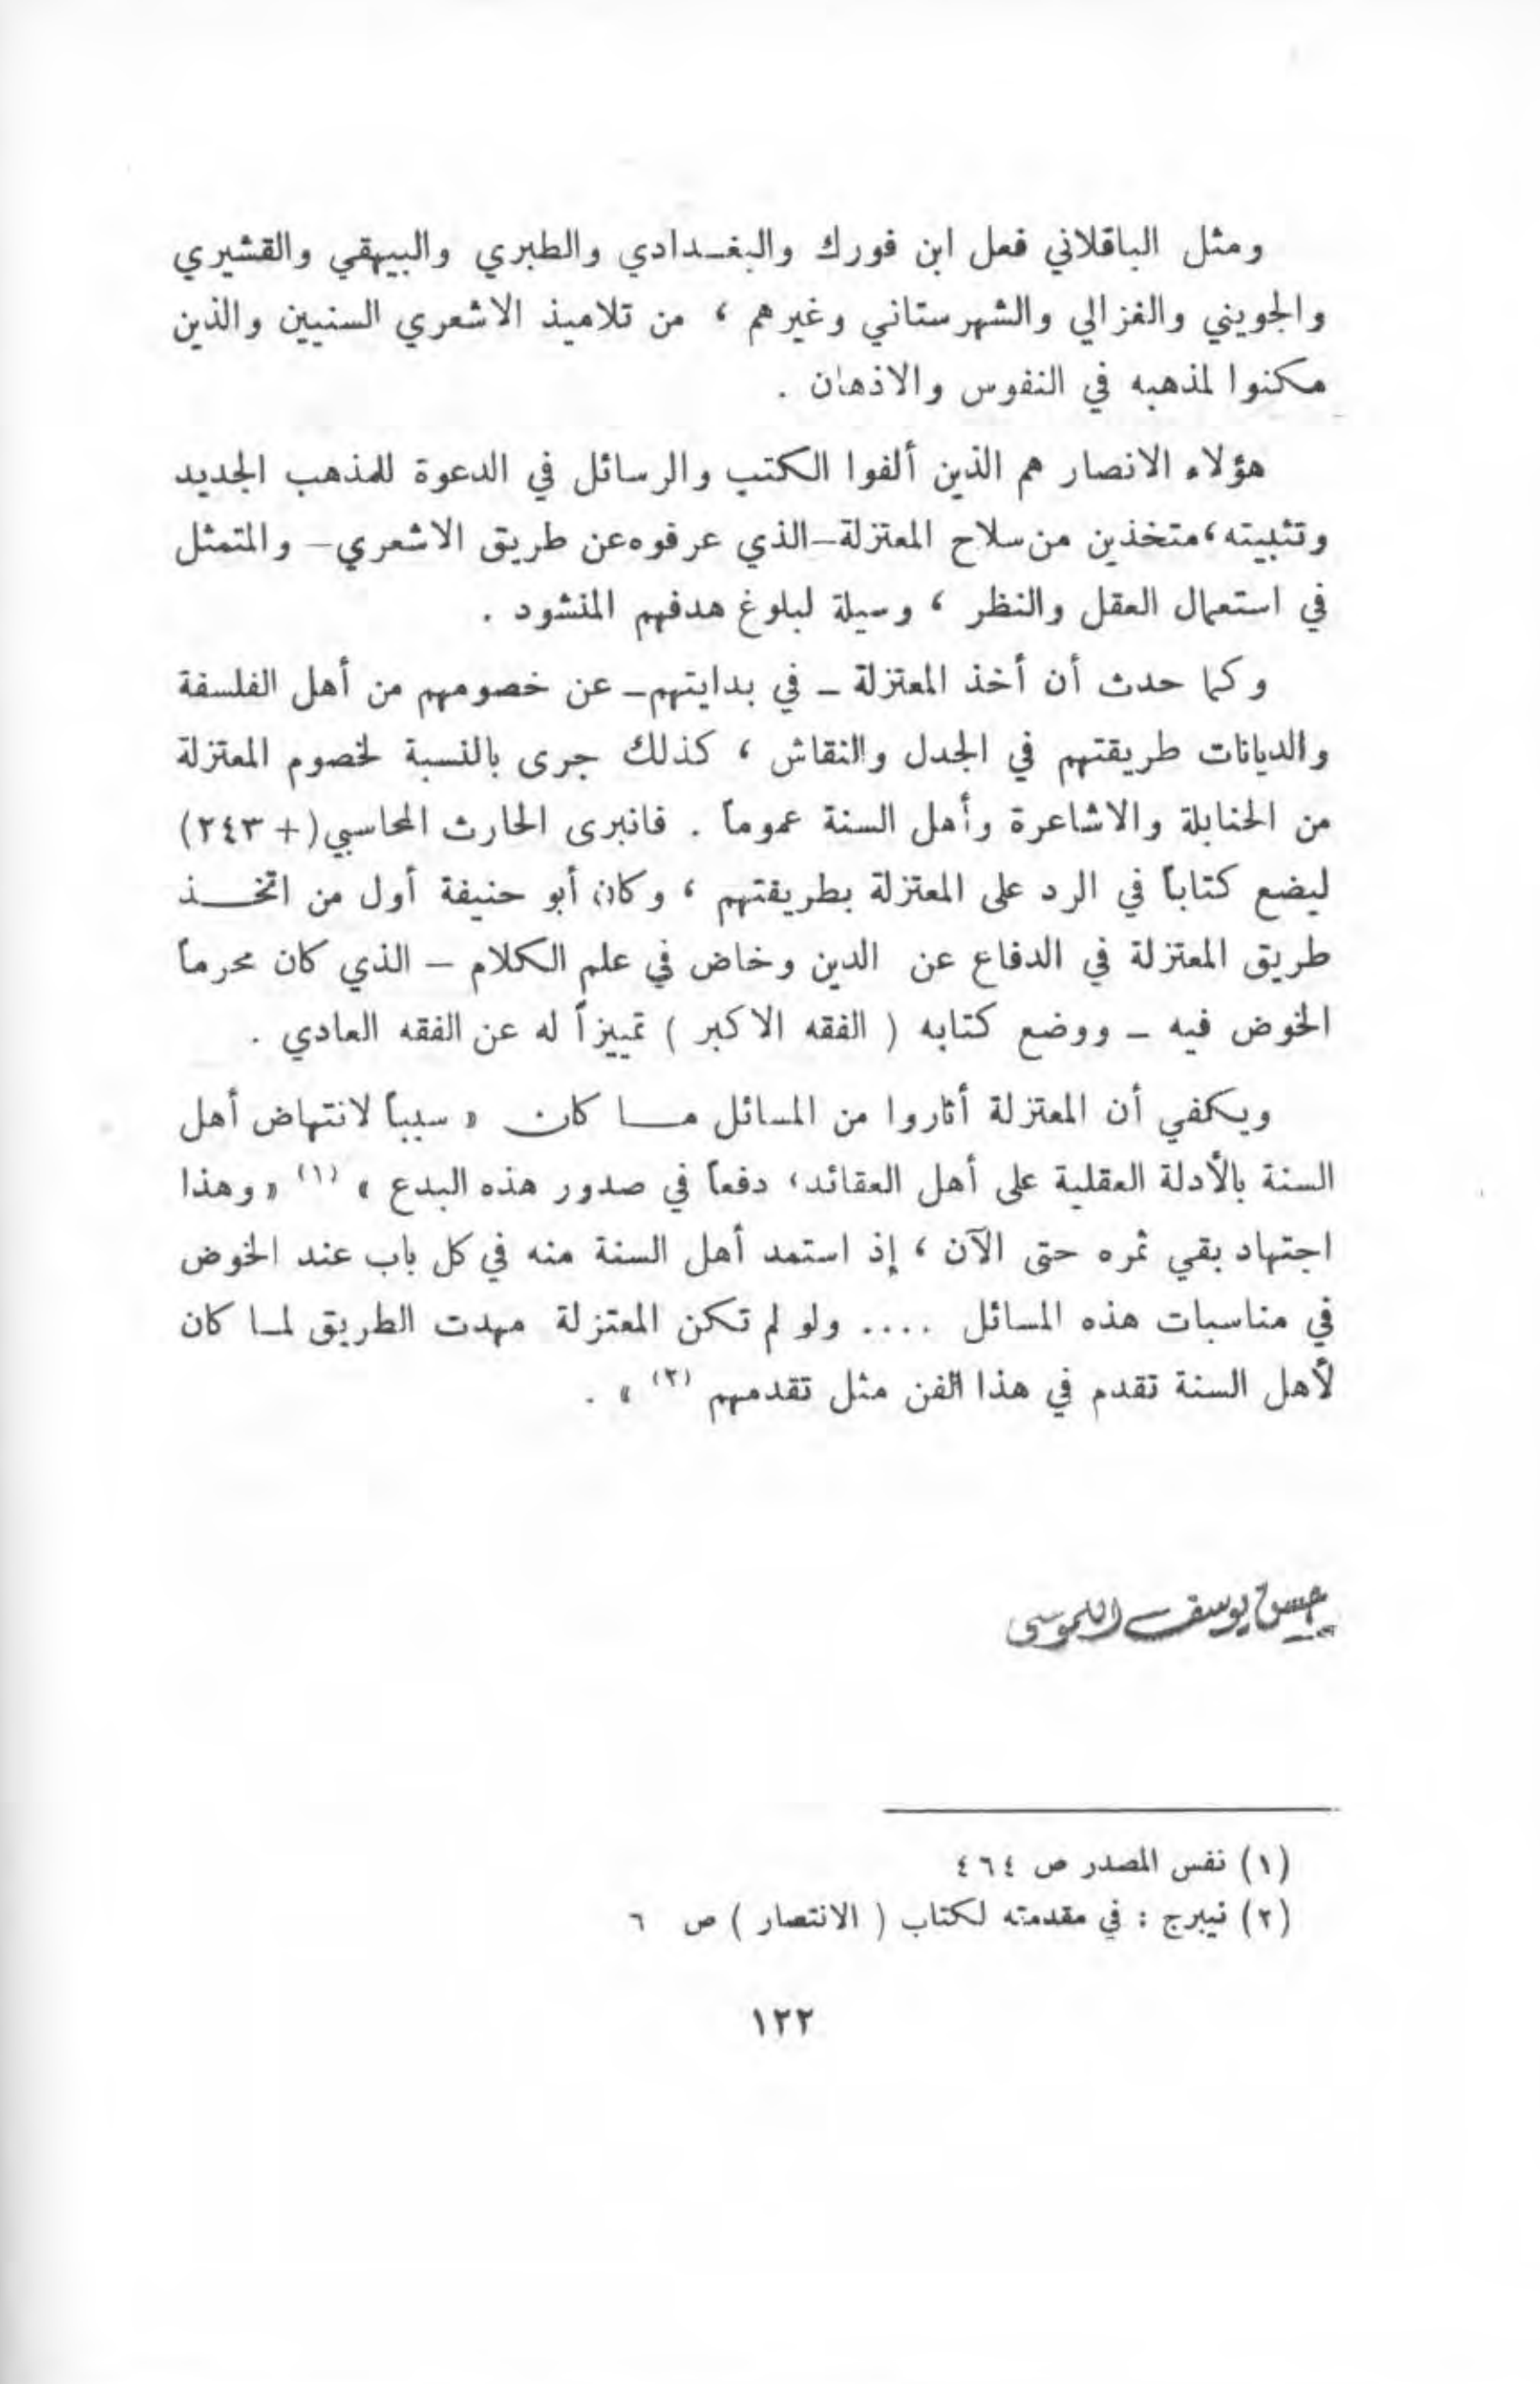 ومثل الباقلاني فعل ابن فورك والبغدادي والطبري والبيهقي والقشيري
والجويني والغزالي والشهرستاني وغيرهم ، من تلاميذ الاشعري السنيين والذين
مكنوا لمذهبه في النفوس والاذهان .
هؤلاء الانصار هم الذين ألفوا الكتب والرسائل في الدعوة للمذهب الجديد
وتثبيته ، متخذين من سلاح المعتزلة – الذي عرفوه عن طريق الاشعري – والمتمثل
في استعمال العقل والنظر ، وسيلة لبلوغ هدفهم المنشود .
وكما حدث أن أخذ المعتزلة – في بدايتهم – عن خصومهم من أهل الفلسفة
والديانات طريقتهم في الجدل والنقاش ، كذلك جرى بالنسبة لخصوم المعتزلة
من الحنابلة والاشاعرة وأهل السنة عموماً . فانبرى الحارث المحاسبي (+ ٢٤٣)
ليضع كتاباً في الرد على المعتزلة بطريقتهم ، وكان أبو حنيفة أول من اتخذ
طريق المعتزلة في الدفاع عن الدين وخاض في علم الكلام – الذي كان محرماً
الخوض فيه – ووضع كتابه ( الفقه الاكبر ) تمييزاً له عن الفقه العادي .
ويكفي أن المعتزلة أثاروا من المسائل ما كان « سبباً لانتهاض أهل
السنة بالأدلة العقلية على أهل العقائد، دفعاً في صدور هذه البدع » (١) « وهذا
اجتهاد بقي ثمره حتى الآن ، إذ استمد أهل السنة منه في كل باب عند الخوض
في مناسبات هذه المسائل .... ولو لم تكن المعتزلة مهدت الطريق لما كان
لأهل السنة تقدم في هذا الفن مثل تقدمهم (٢) » .
يوسف
(١) نفس المصدر ص ٤٦٤
(٢) نيبرج : في مقدمته لكتاب ( الانتصار ) ص ٦
١٢٢